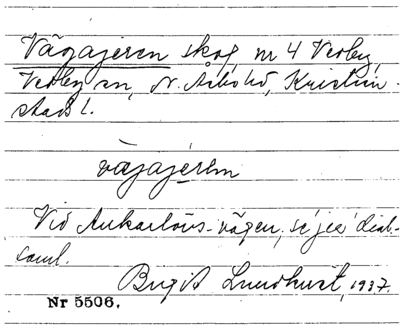 Vägajeren skog, nr 4 Verby,
Verby sn, N. Åsbo hd, Kristian-
stads l.
vägajérėn
Vid Ankarlövs-vägen, se jea dial-
saml.
Birgit Lundkvist, 1937.
Nr 5506.